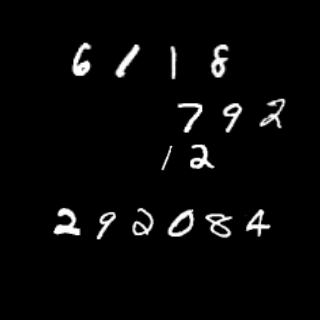 6118
792
12
292084